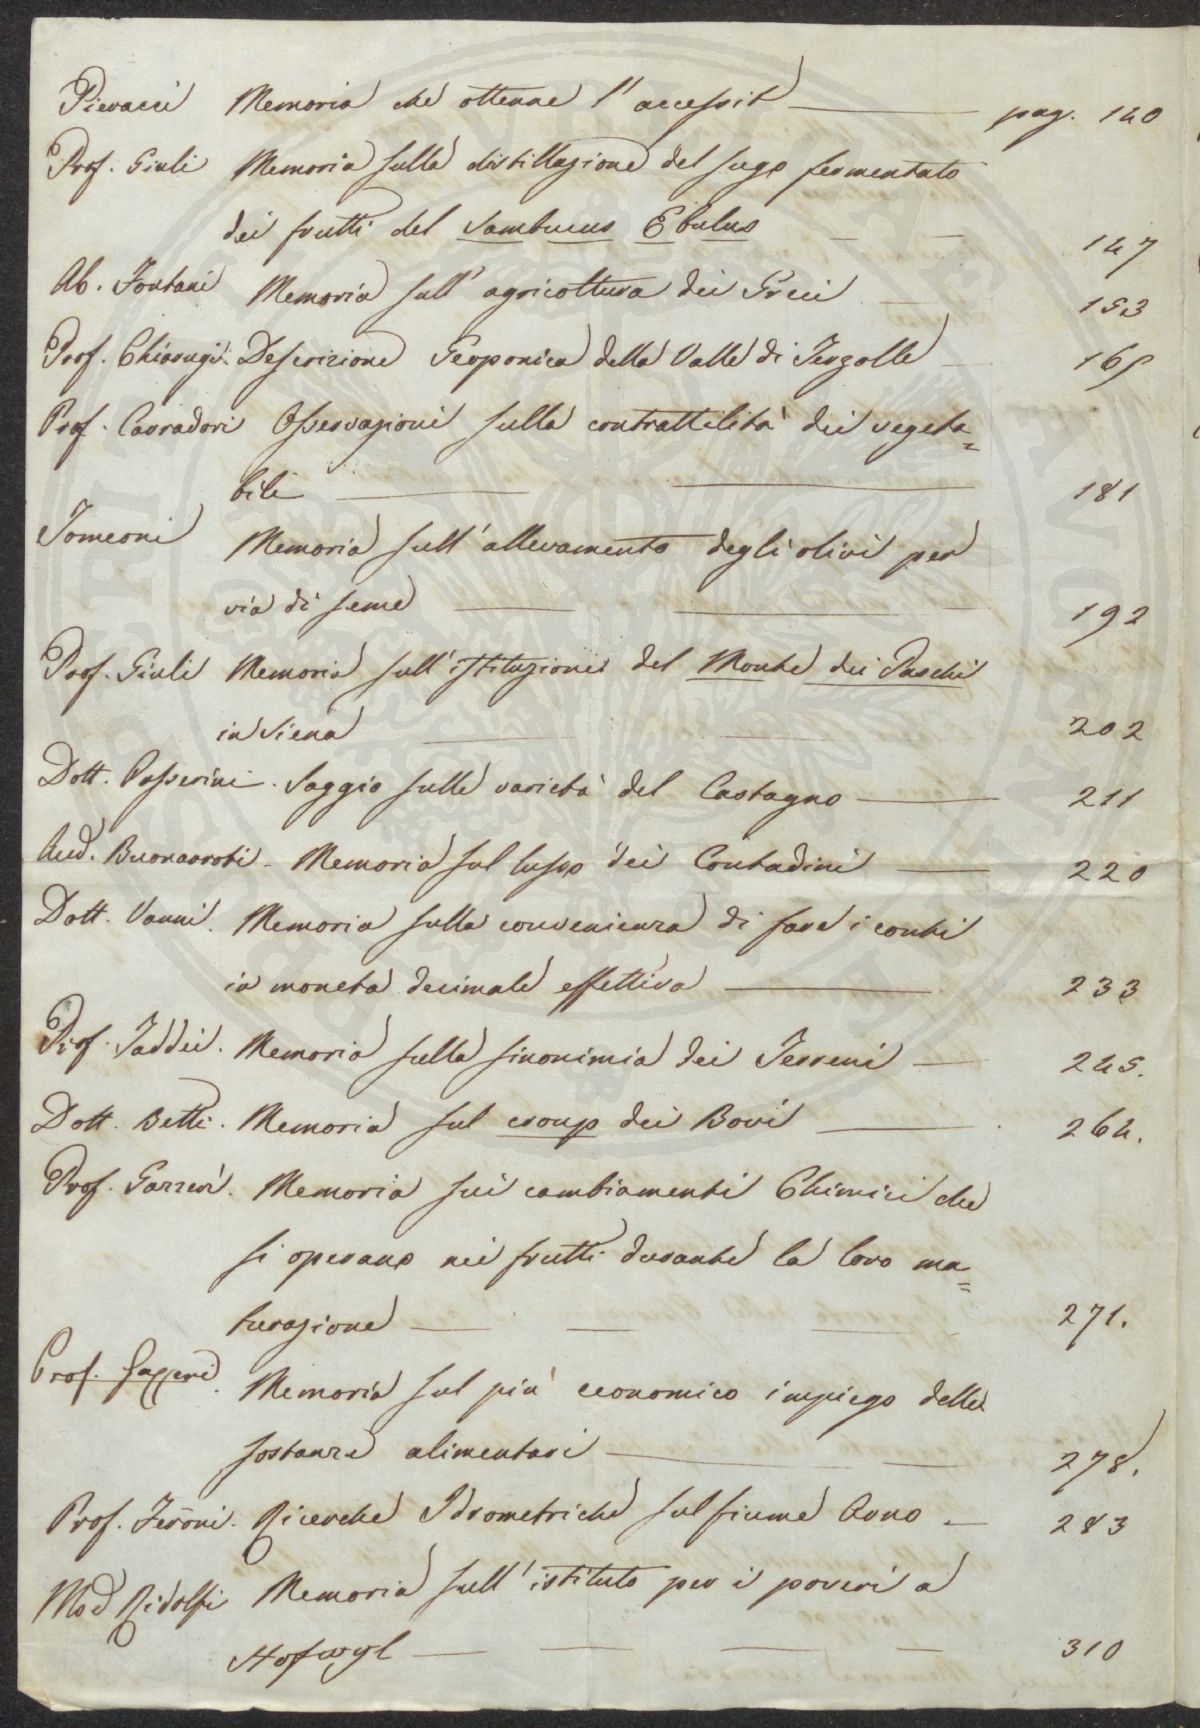 Pieracci Memoria che ottenne l'accessit pag. 140
Prof. Giuli Memoria sulla distillazione del sugo fermentato
dei frutti del Sambucus Ebulus 147
Ab. Fontani Memoria sull'agricoltura dei Greci 153
Prof. Chiarugi. Descrizione Geoponica della Valle di Terzolle 165
Prof. Carradori Osservazioni sulla contrattilità dei vegeta=
bili 181
Tomeoni Memoria sull'allevamento degli olivi per
via di seme 192
Prof. Giuli Memoria sull'istituzione del Monte dei Paschi
in Siena 202
Dott. Passerini. Saggio sulle varietà del Castagno 211
Aud. Buonarroti - Memoria sul lusso dei Contadini 220
Dott. Vanni. Memoria sulla convenienza di fare i conti
in moneta decimale effettiva 233
Prof. Taddei. Memoria sulla sinonimia dei Terreni 245.
Dott. Betti. Memoria sul croup dei Bovi 264.
Prof. Gazzeri. Memoria sui cambiamenti Chimici che
si operano nei frutti durante la loro ma=
turazione 271.
Prof. Gazzeri. Memoria sul più economico impiego delle
sostanze alimentari 278.
Prof. Ferroni. Ricerche Idrometriche sul fiume Arno 283
Ridolfi Memoria sull'istituto per i poveri a
Hofwyl 310